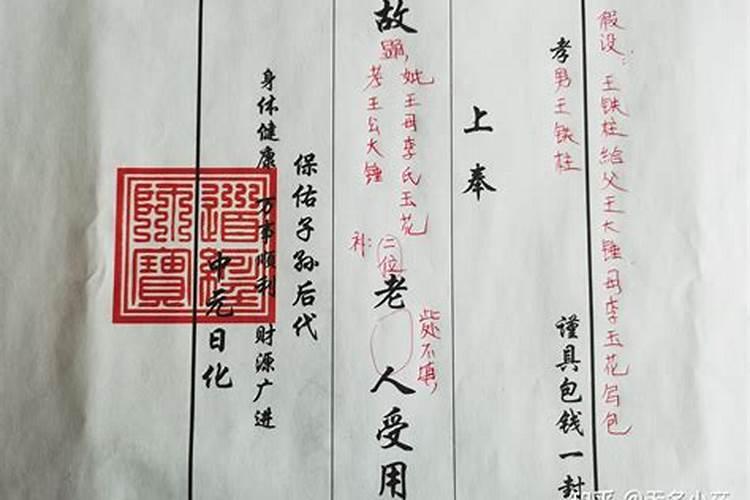 假设：王铁柱给父王大锤母李玉花写包
孝男王铁柱 谨具包钱一封
上奉
故
显，
妣王母李氏玉花
考王公大锤
补：二位
老人受用
此处不填，
保佑子孙后代
身体健康 万事顺利 财源广进
中元日化
道经师宝
知乎